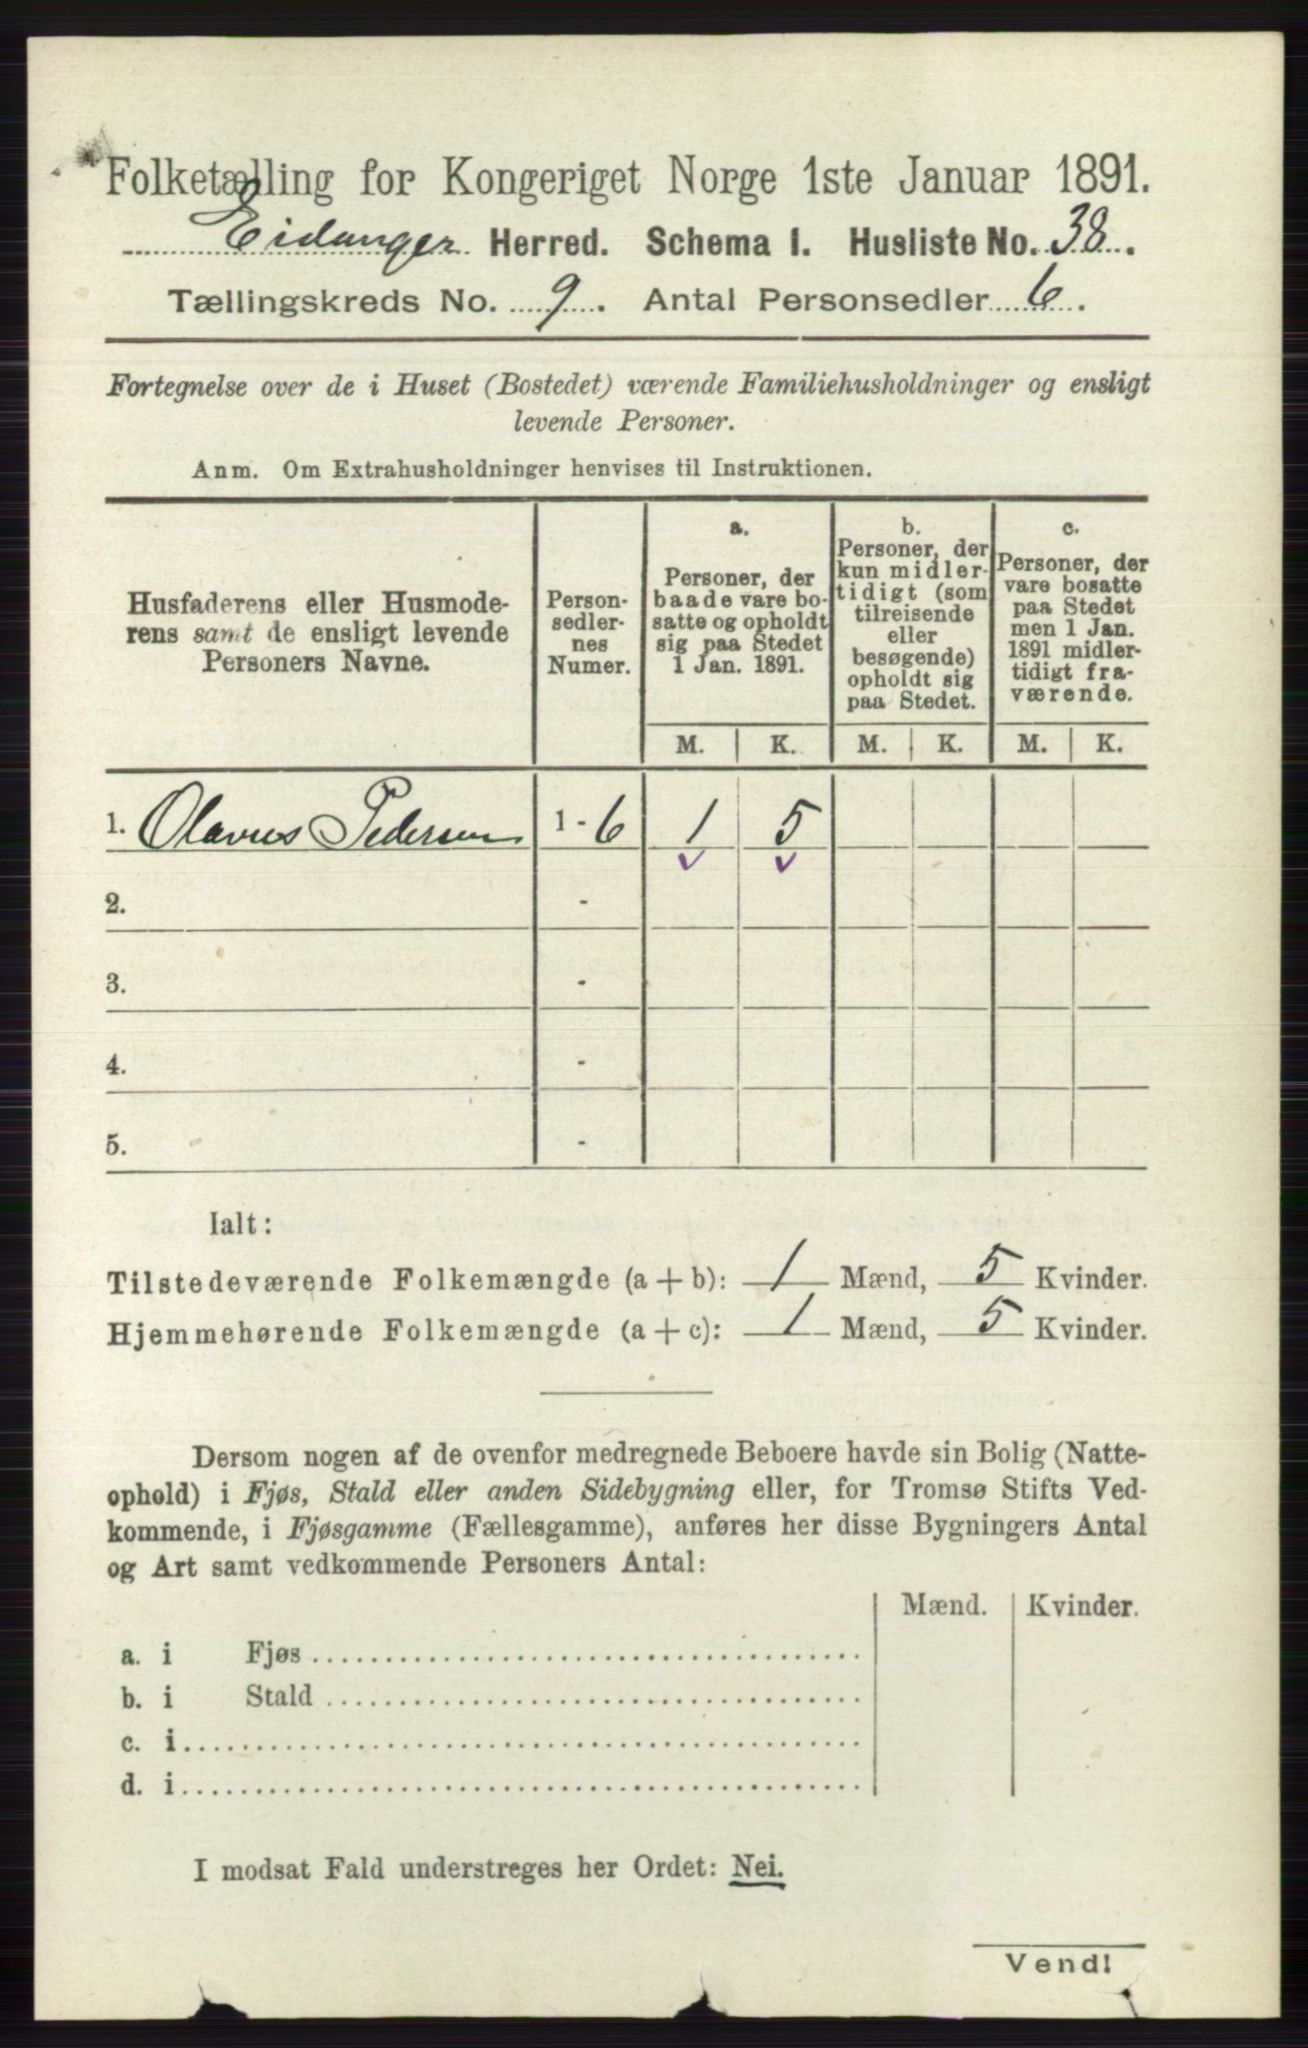 Folketælling for Kongeriget Norge 1ste Januar 1891.
Eidanger Herred. Schema I. Husliste No. 38.
Tællingskreds No. 9. Antal Personsedler 6.
Fortegnelse over de i Huset (Bostedet) værende Familiehusholdninger og ensligt
levende Personer.
Anm. Om Extrahusholdninger henvises til Instruktionen.
Husfaderens eller Husmode-
rens samt de ensligt levende
Personers Navne.
Person-
sedler-
nes
Numer.
a.
Personer, der
baade vare bo-
satte og opholdt
sig paa Stedet
1 Jan. 1891.
b.
Personer, der
kun midler-
tidigt (som
tilreisende
eller
besøgende)
opholdt sig
paa Stedet.
c.
Personer, der
vare bosatte
paa Stedet
men 1 Jan.
1891 midler-
tidigt fra-
værende.
M. K. M. K. M. K.
1. Olavus Pedersen 1 - 6 1 5
2. -
3. -
4. -
5. -
Ialt:
Tilstedeværende Folkemængde (a + b): 1 Mænd, 5 Kvinder.
Hjemmehørende Folkemængde (a + c): 1 Mænd, 5 Kvinder.
Dersom nogen af de ovenfor medregnede Beboere havde sin Bolig (Natte-
ophold) i Fjøs, Stald eller anden Sidebygning eller, for Tromsø Stifts Ved-
kommende, i Fjøsgamme (Fællesgamme), anføres her disse Bygningers Antal
og Art samt vedkommende Personers Antal:
Mænd. Kvinder.
a. i Fjøs
b. i Stald
c. i
d. i
I modsat Fald understreges her Ordet: Nei.
Vend!